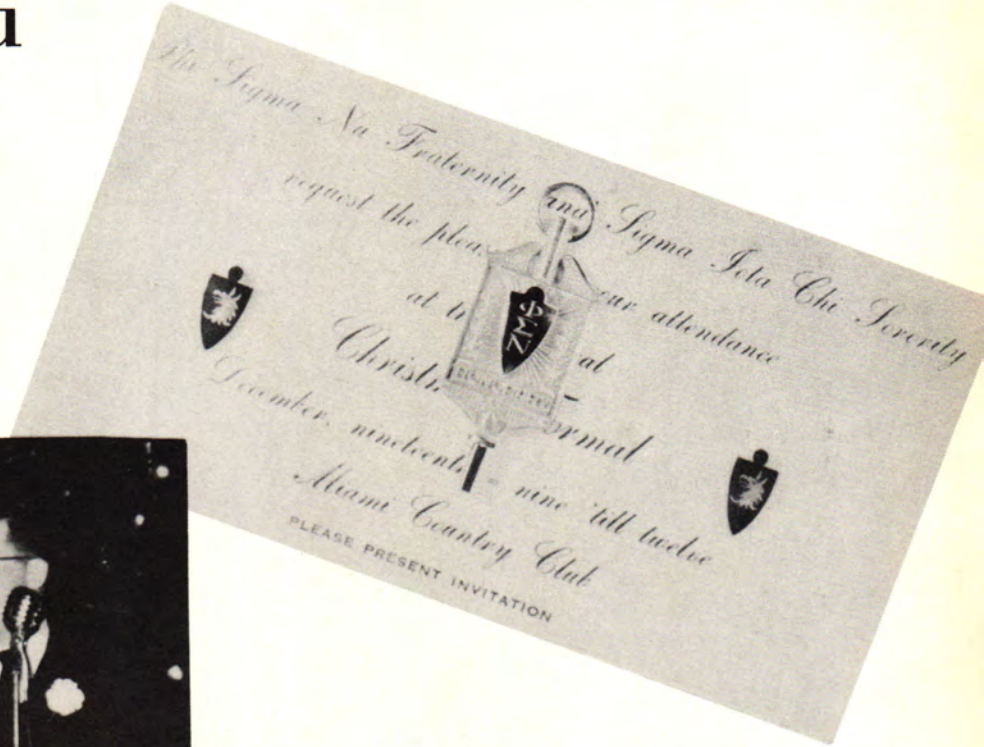 u
The Sigma Nu Fraternity and Sigma Iota Chi Sorority
request the plea our attendance
at t at
Christm ormal
December, nineteenth - nine 'till twelve
Miami Country Club
PLEASE PRESENT INVITATION
ΦΜΖ